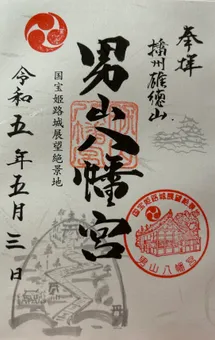 奉拝
播州雄徳山
男山八幡宮
国宝姫路城展望絶景地
令和五年五月三日
国宝姫路城展望絶景地
男山八幡宮